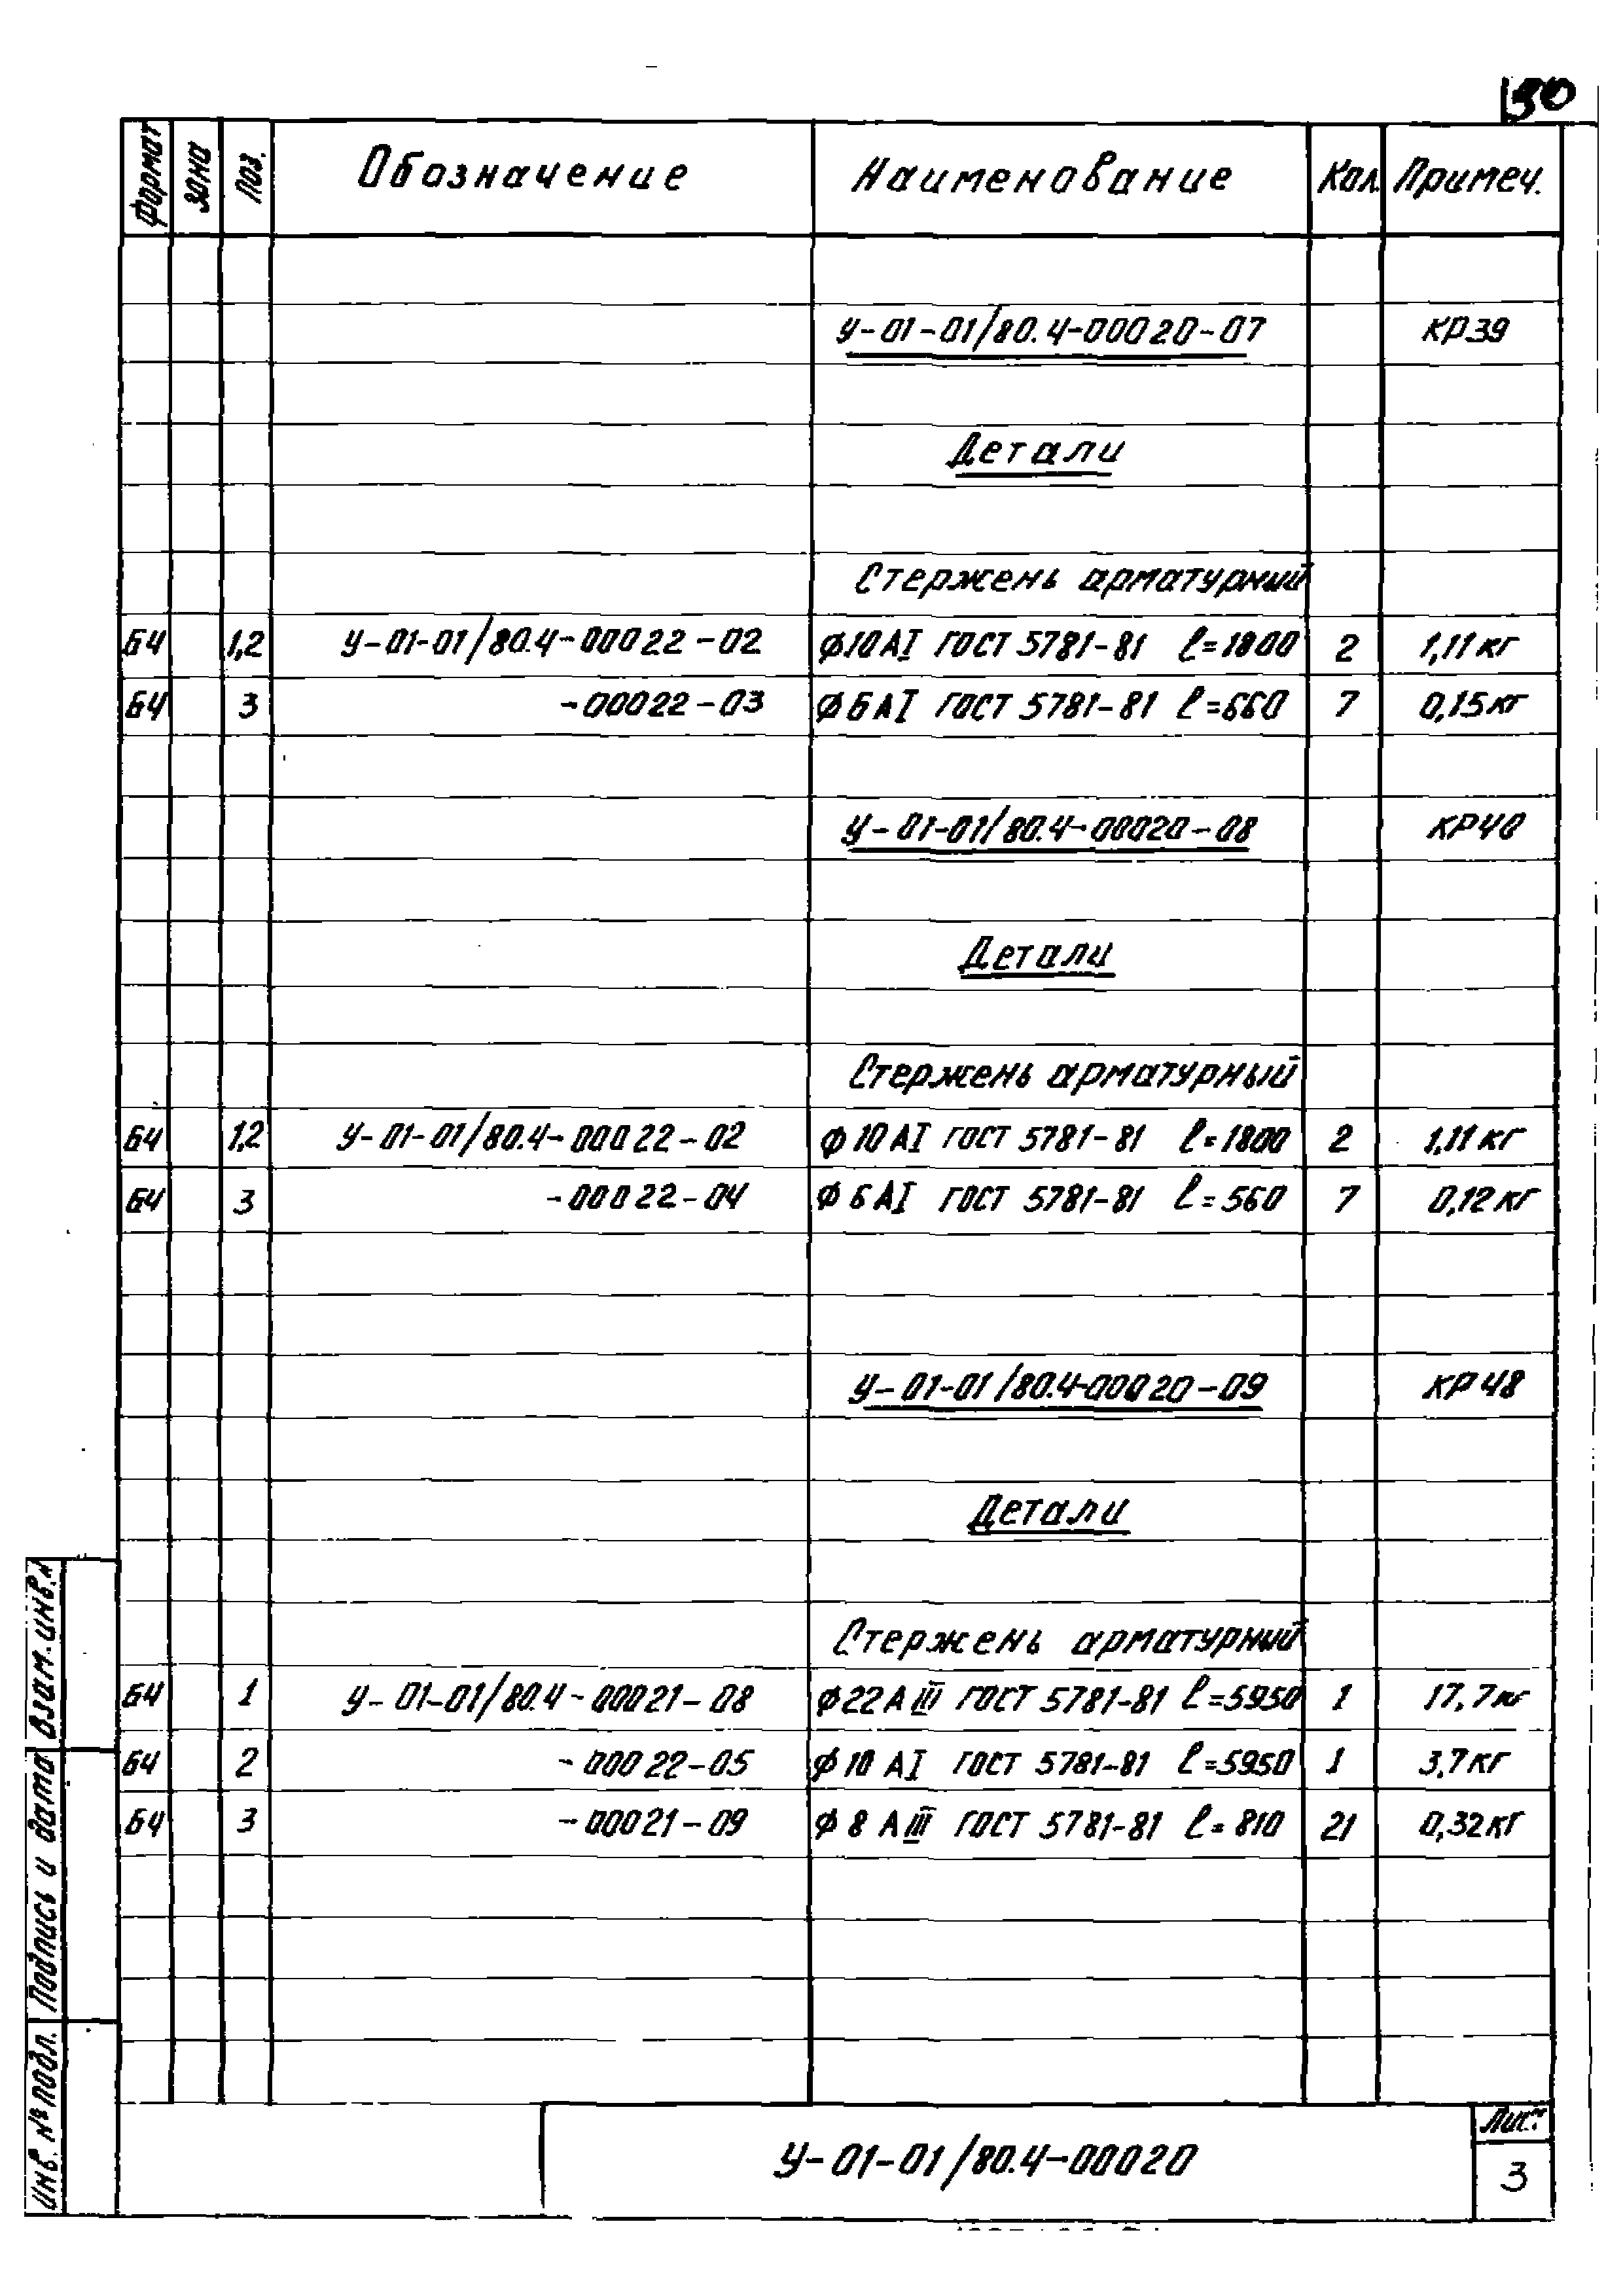 30
Формат Зона Поз. Обозначение Наименование Кол. Примеч.
У-01-01/80.4-00020-07 КР39
Детали
Стержень арматурний
БЧ 1,2 У-01-01/80.4-00022-02 ф10АI ГОСТ 5781-81 ℓ=1800 2 1,11кг
БЧ 3 -00022-03 ф6АI ГОСТ 5781-81 ℓ=660 7 0,15кг
У-01-01/80.4-00020-08 КР40
Детали
Стержень арматурный
БЧ 1,2 У-01-01/80.4-00022-02 ф10АI ГОСТ 5781-81 ℓ=1800 2 1,11кг
БЧ 3 -00022-04 ф6АI ГОСТ 5781-81 ℓ=560 7 0,12кг
У-01-01/80.4-00020-09 КР48
Детали
Стержень арматурний
БЧ 1 У-01-01/80.4-00021-08 ф22АIII ГОСТ 5781-81 ℓ=5950 1 17,7кг
БЧ 2 -00022-05 ф10 АI ГОСТ 5781-81 ℓ=5950 1 3,7кг
БЧ 3 -00021-09 ф8 АIII ГОСТ 5781-81 ℓ=810 21 0,32кг
Взам. инв. №
Подпись и дата
Инв. № подл.
У-01-01/80.4-00020
Лист
3